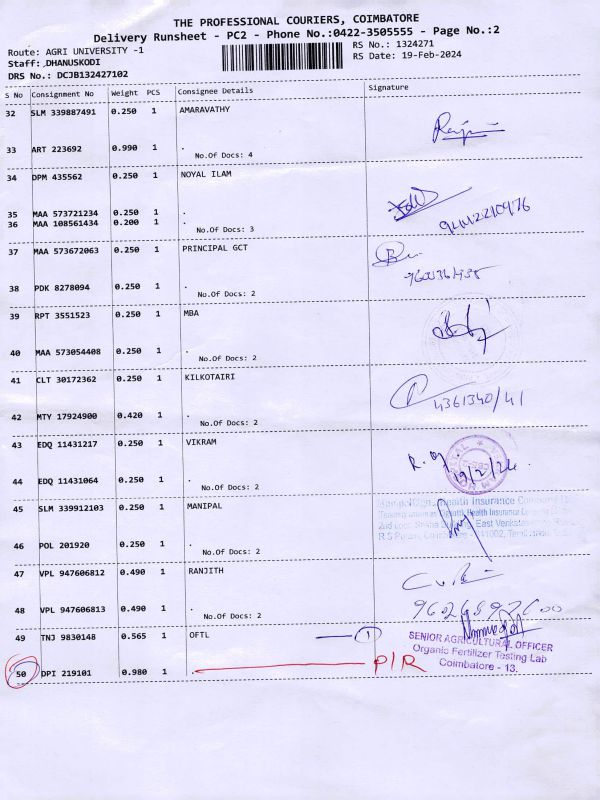 THE PROFESSIONAL COURIERS, COIMBATORE
Delivery Runsheet - PC2 - Phone No.:0422-3505555 - Page No.:2
Route: AGRI UNIVERSITY -1
RS No.: 1324271
Staff: DHANUSKODI
RS Date: 19-Feb-2024
DRS No.: DCJB132427102
S No Consignment No Weight PCS Consignee Details Signature
32 SLM 339887491 0.250 1 AMARAVATHY
33 ART 223692 0.990 1 .
No.Of Docs: 4
34 DPM 435562 0.250 1 NOYAL ILAM
35 MAA 573721234 0.250 1 .
36 MAA 108561434 0.200 1 .
No.Of Docs: 3
9442210976
37 MAA 573672063 0.250 1 PRINCIPAL GCT
38 PDK 8278094 0.250 1 .
No.Of Docs: 2
39 RPT 3551523 0.250 1 MBA
40 MAA 573054408 0.250 1 .
No.Of Docs: 2
41 CLT 30172362 0.250 1 KILKOTAIRI
4361340/41
42 MTY 17924900 0.420 1 .
No.Of Docs: 2
43 EDQ 11431217 0.250 1 VIKRAM
19/2/24
44 EDQ 11431064 0.250 1 .
No.Of Docs: 2
45 SLM 339912103 0.250 1 MANIPAL
Health Insurance Company
Health Insurance Company
East Venkatesa
R S Puram, Coimbatore - 641002, Tamil
46 POL 201920 0.250 1 .
No.Of Docs: 2
47 VPL 947606812 0.490 1 RANJITH
48 VPL 947606813 0.490 1 .
No.Of Docs: 2
49 TNJ 9830148 0.565 1 OFTL 1
SENIOR AGRICULTURAL OFFICER
Organic Fertilizer Testing Lab
Coimbatore - 13.
50 DPI 219101 0.980 1 . P/R